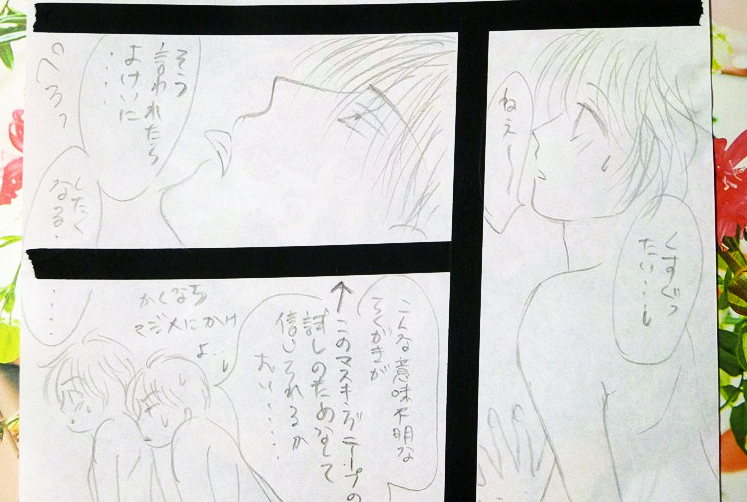 ねぇ〜
くすぐっ
たい…し
そう
言われたら
よけいに
・・・・
ぺろっ
したく
なる・
こんな意味不明な
らくがきが
↑このマスキングテープの
試しのためだなんて
信じてれるか
おい・・・・・
かくなら
マジメにかけ
よ…
・・・・